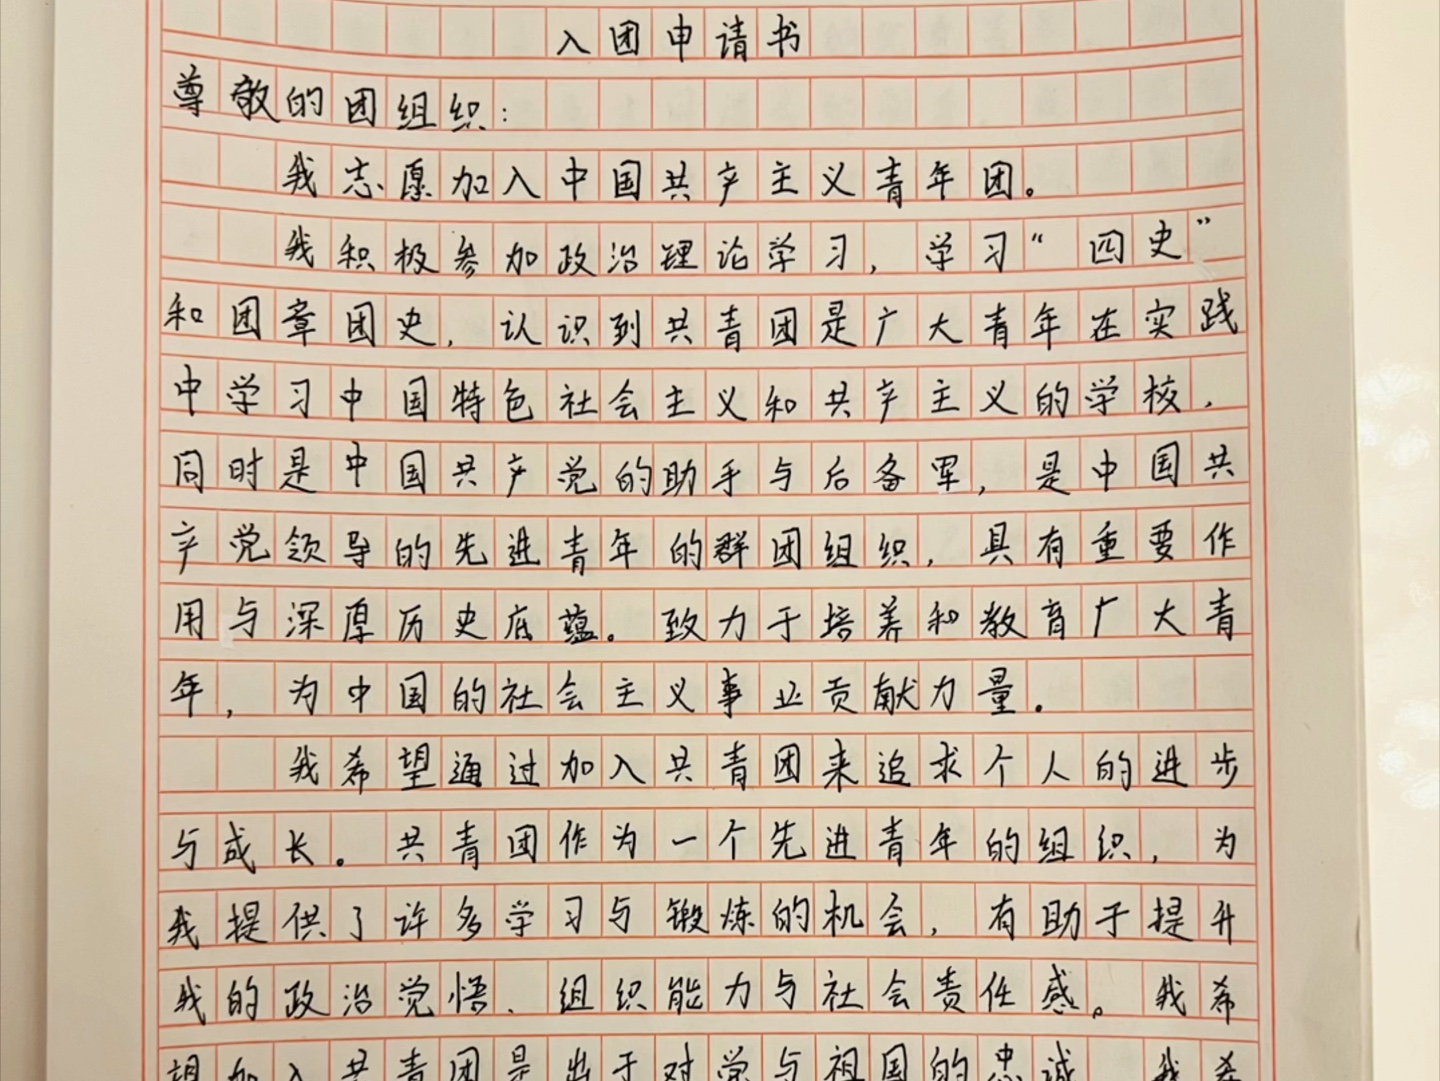 入团申请书
尊敬的团组织：
我志愿加入中国共产主义青年团。
我积极参加政治理论学习，学习“四史”
和团章团史，认识到共青团是广大青年在实践
中学习中国特色社会主义和共产主义的学校，
同时是中国共产党的助手与后备军，是中国共
产党领导的先进青年的群团组织，具有重要作
用与深厚历史底蕴。致力于培养和教育广大青
年，为中国的社会主义事业贡献力量。
我希望通过加入共青团来追求个人的进步
与成长。共青团作为一个先进青年的组织，为
我提供了许多学习与锻炼的机会，有助于提升
我的政治觉悟、组织能力与社会责任感。我希
望加入共青团是出于对党与祖国的忠诚，我希